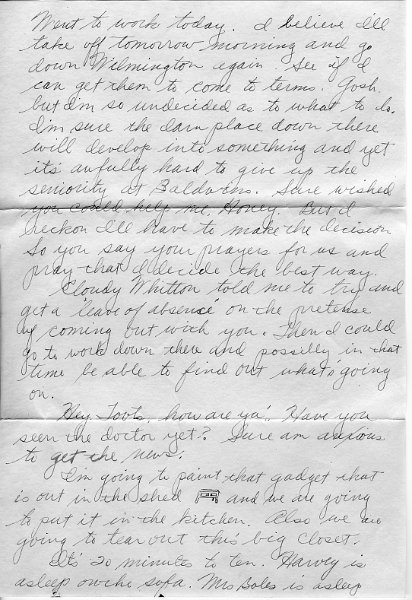 Went to work today. I believe I'll
take off tomorrow morning and go
down Wilmington again. See if I
can get them to come to terms. Gosh
but I'm so undecided as to what to do.
I'm sure the darn place down there
will develop into something and yet
it's awfully hard to give up the
seniority at Baldwins. Sure wished
you could help me, Honey. But I
reckon I'll have to make the decision
So you say your prayers for us and
pray that I decide the best way.
Cloudy Whitton told me to try and
get a "leave of absence" on the pretense
of coming out with you. Then I could
go to work down there and possilly in that
time be able to find out whats going
on.
Hey, Toots, how are ya'. Have you
seen the doctor yet? Sure am anxious
to get the news.
I'm going to paint that gadget that
is out in the shed and we are going
to put it in the kitchen. Also we are
going to tear out this big closet.
It's 20 minutes to ten. Harvey is
asleep on the sofa. Mrs Boles is asleep